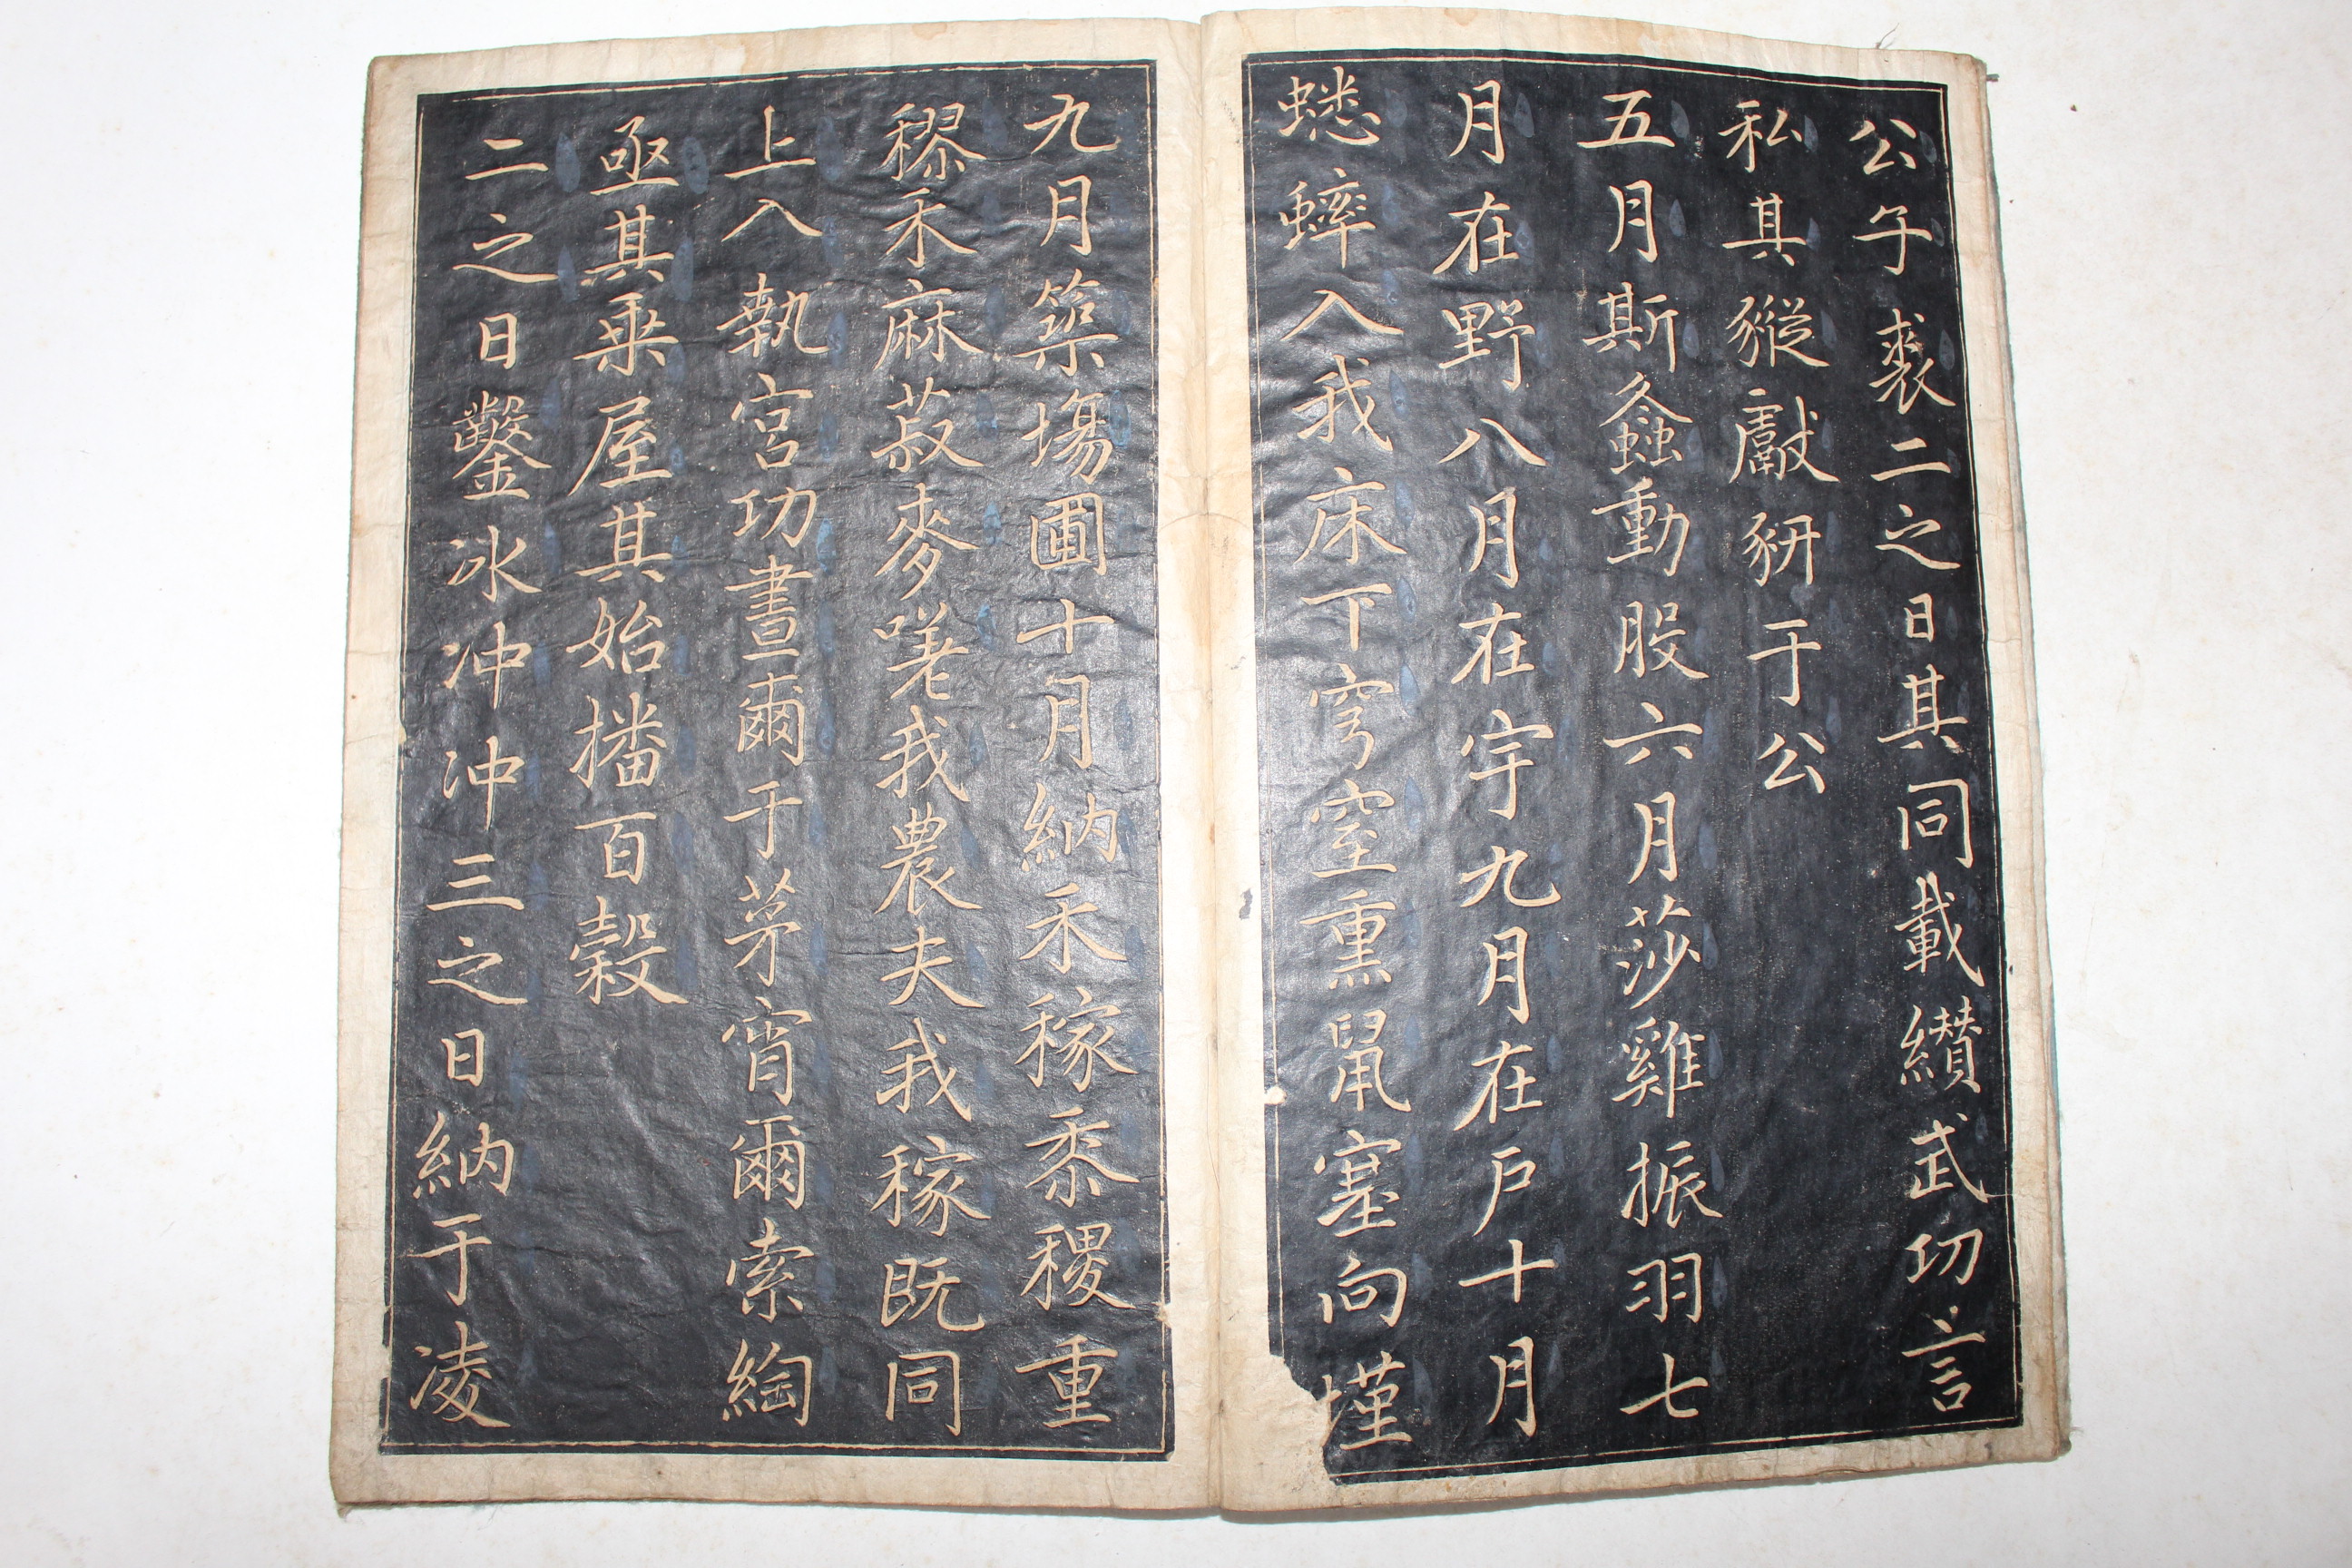 公子裘二之日其同載纘武功言
私其豵獻豜于公
五月斯螽動股六月莎雞振羽七
月在野八月在宇九月在戶十月
蟋蟀入我床下穹窒熏鼠塞向墐
九月築塲圃十月納禾稼黍稷重
穋禾麻菽麥嗟我農夫我稼既同
上入執宮功晝爾于茅宵爾索綯
亟其乗屋其始播百穀
二之日鑿冰冲冲三之日納于凌